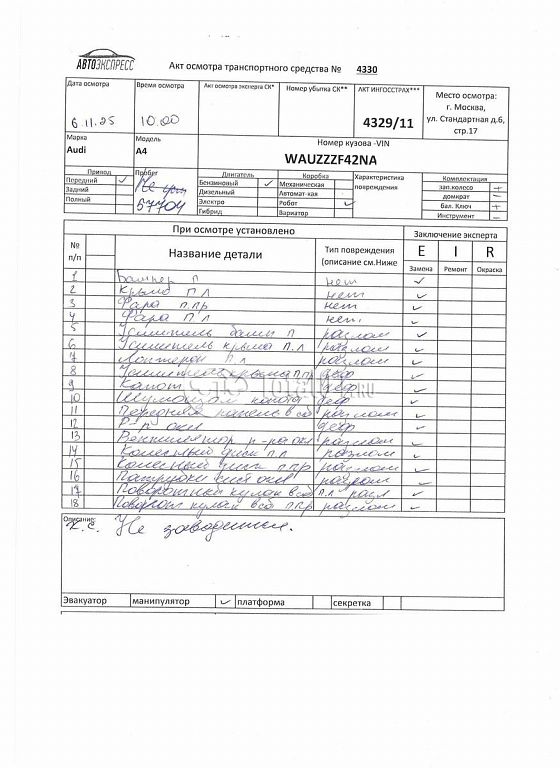 АВТОЭКСПРЕСС
Акт осмотра транспортного средства № 4330
Дата осмотра Время осмотра Акт осмотра эксперта СК* Номер убытка СК** АКТ ИНГОССТРАХ*** Место осмотра:
г. Москва,
6.11.25 10.00 4329/11 ул. Стандартная д.6,
стр.17
Марка Модель Номер кузова -VIN
Audi A4 WAUZZZF42NA
Привод Пробег Двигатель Коробка Характеристика Комплектация
Передний Не Бензиновый Механическая повреждения зап.колесо +
Задний 57704 Дизельный Автомат-кая домкрат –
Полный Электро Робот бал. Ключ +
Гибрид Вариатор Инструмент –
При осмотре установлено Заключение эксперта
№ Название детали Тип повреждения E I R
п/п (описание см.Ниже Замена Ремонт Окраска
1 Бампер П нет
2 Крыло П Л нет
3 Фара П.ПР нет
4 Фара П Л нет.
5 Усилитель П разлом
6 Усилитель крыла П.Л разлом
7 Лонжерон П.Л разлом
8 Усилитель крыла П ПР деф
9 Капот деф
10 капота деф
11 Передняя панель в сб разлом
12 деф
13 разлом
14 Колесный диск П.Л разлом
15 Колесный диск П ПР разлом
16 Патрубки разлом
17 Поворотный кулак в сб П.Л
18 кулак в сб П ПР разлом
Описание:
Не заводится.
Эвакуатор манипулятор платформа секретка